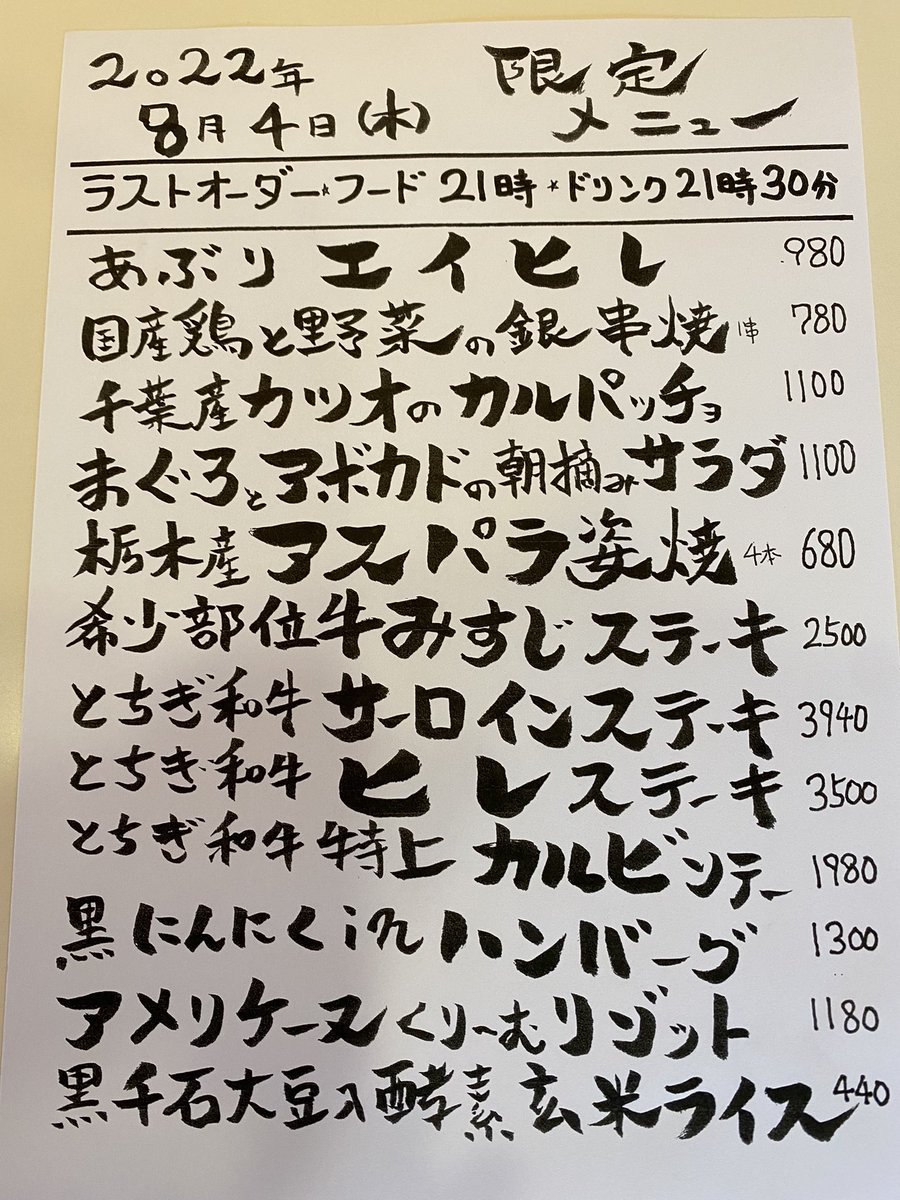 2022年 限定
8月4日(木) メニュー
ラストオーダー★フード21時★ドリンク21時30分
あぶりエイヒレ 980
国産鶏と野菜の銀串焼 1串 780
千葉産カツオのカルパッチョ 1100
まぐろとアボカドの朝摘みサラダ 1100
栃木産アスパラ姿焼 4本 680
希少部位牛みすじステーキ 2500
とちぎ和牛サーロインステーキ 3940
とちぎ和牛ヒレステーキ 3500
とちぎ和牛特上カルビソテー 1980
黒にんにくinハンバーグ 1300
アメリケーヌくりーむリゾット 1180
黒千石大豆入酵素玄米ライス 440